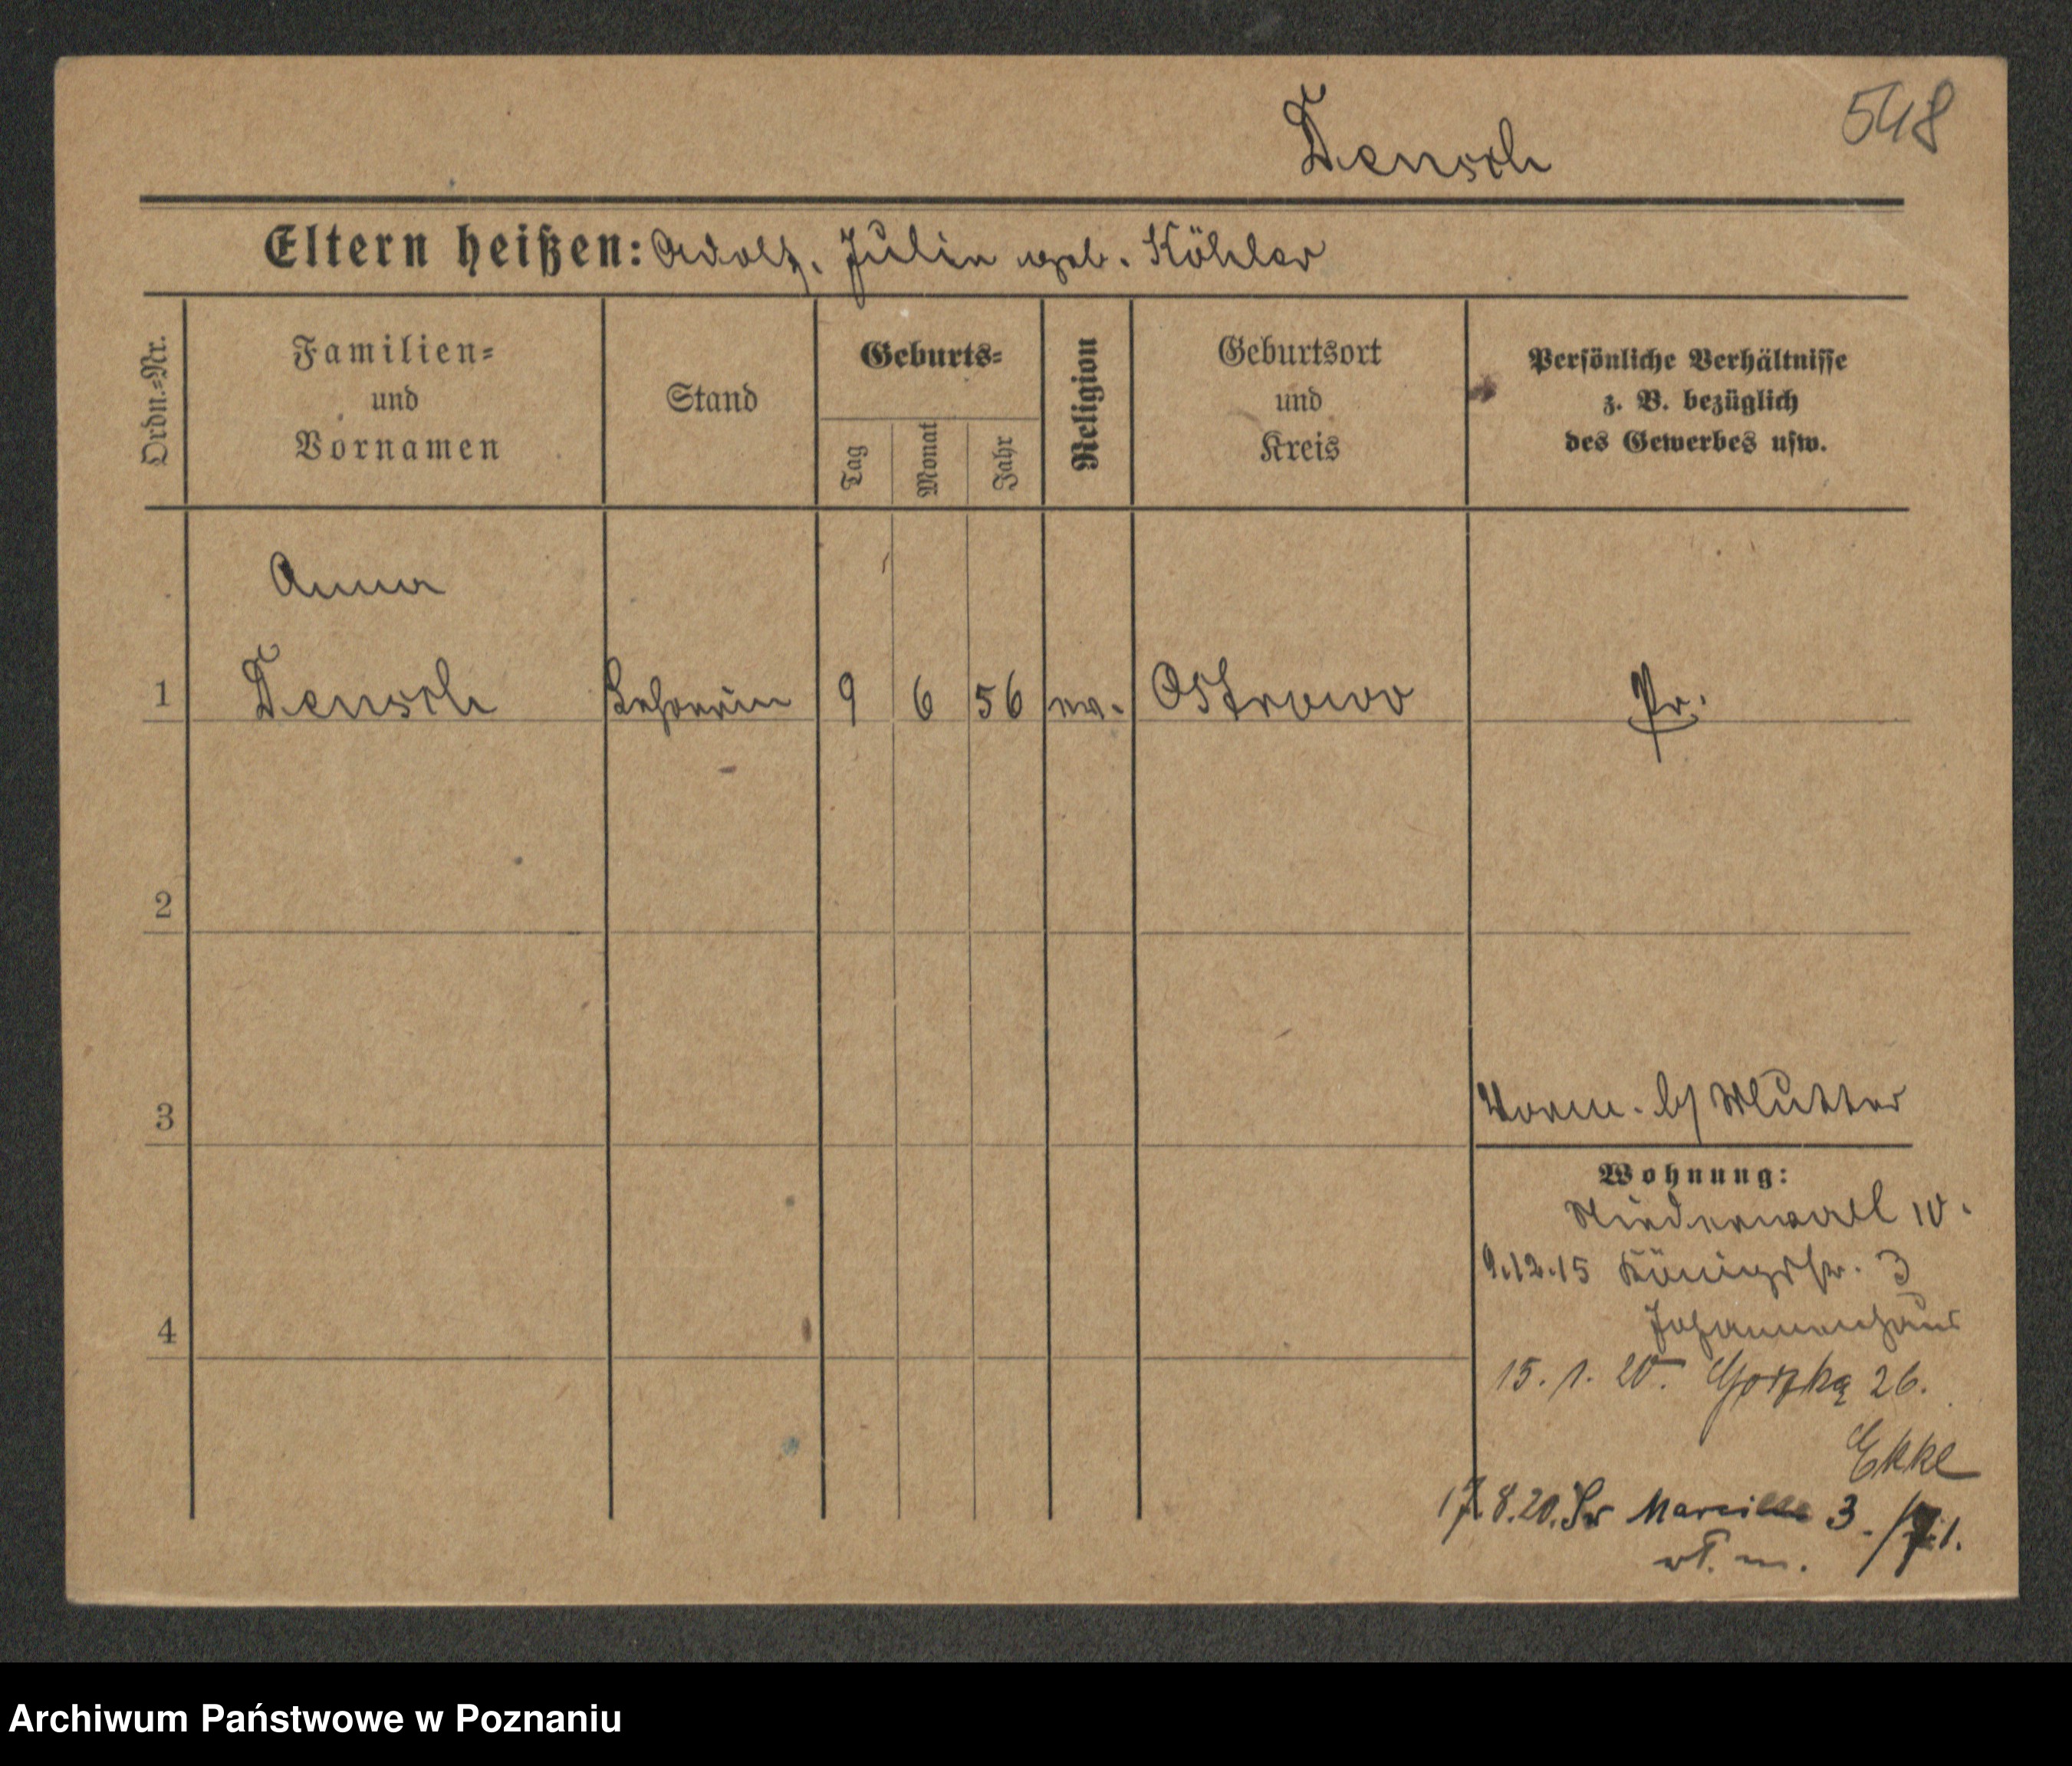 548
Densch
Eltern heißen: Adolf. Julie geb. Köhler
Ordn.-Nr.
Familien-
und
Vornamen
Stand
Geburts-
Tag
Monat
Jahr
Religion
Geburtsort
und
Kreis
Persönliche Verhältnisse
z. B. bezüglich
des Gewerbes usw.
Anna
1 Densch Lehrerin 9 6 56 ev. Ostrowo Pr.
2
3
Vorm. b/ Mutter
Wohnung:
Niederwall 10.
9.12.15 Königstr. 3
Johannenhaus
4
15. 1. 20. 26.
17.8.20. 3.
Archiwum Państwowe w Poznaniu